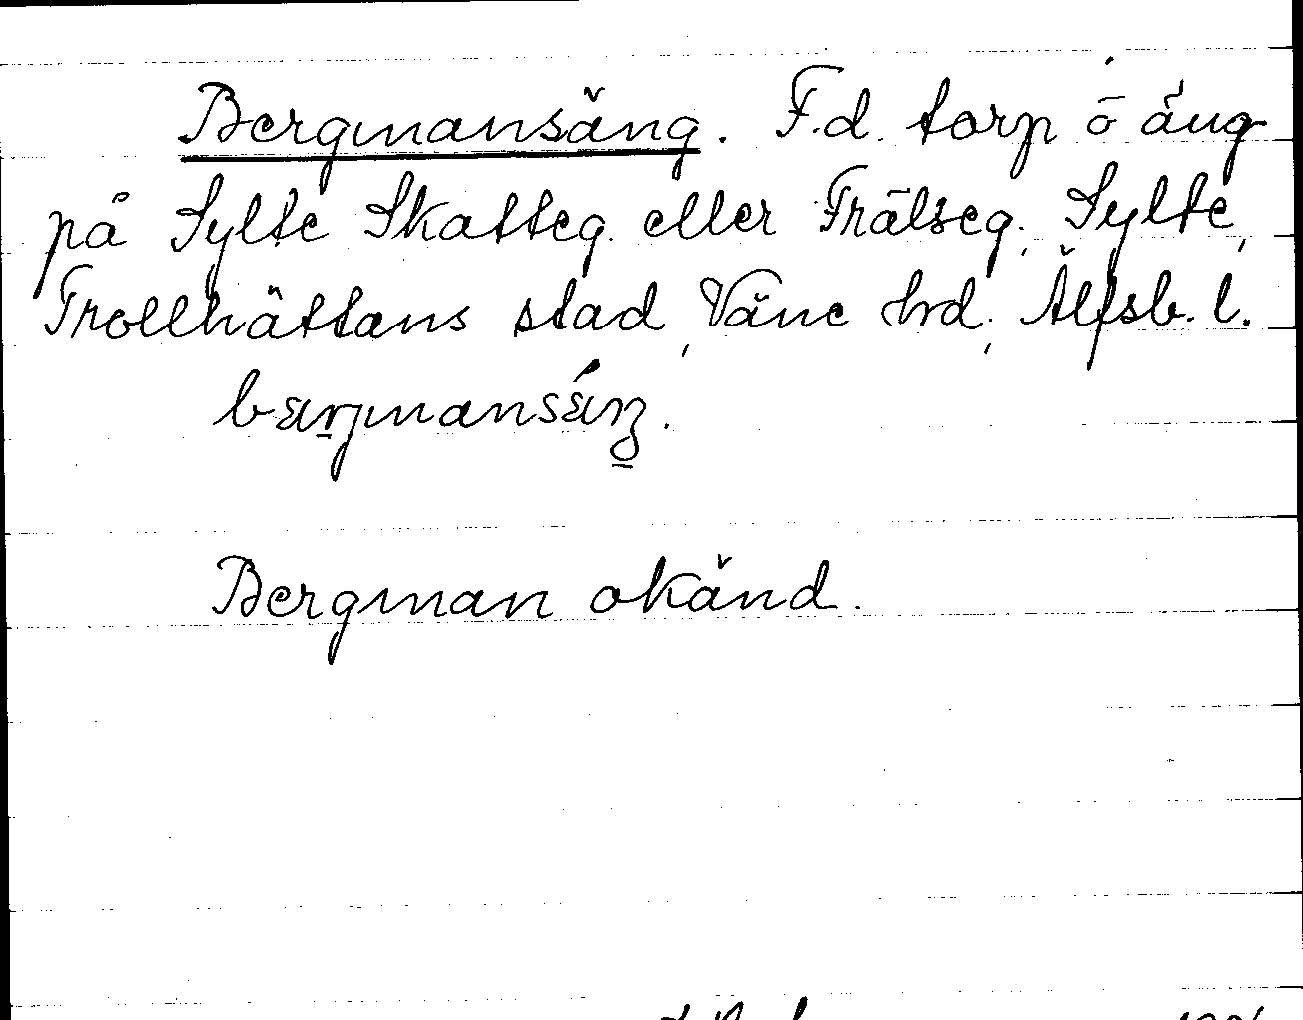 Bergmansäng. F.d. torp o äng
på Sylte Skatteg. eller Frälseg., Sylte,
Trollhättans stad, Väne hrd., Älfsb. l.
Bergman okänd.